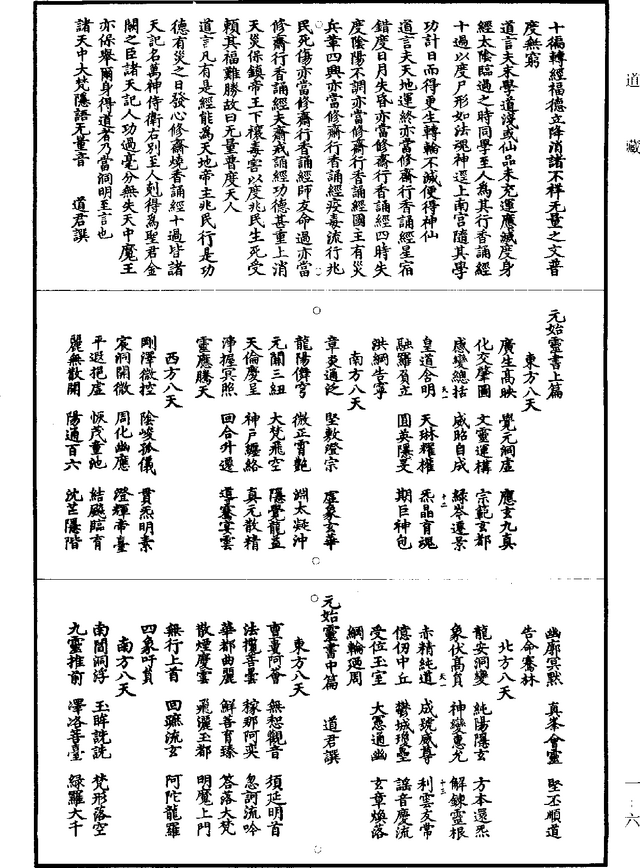 道藏
十徧轉經福德立降消諸不祥无量之文普
度無窮
道言夫末學道淺或仙品未充運應滅度身
經太陰臨過之時同學至人為其行香誦經
十過以度尸形如法魂神逕上南宫隨其學
功計日而得更生轉輪不滅便得神仙
道言夫天地運終亦當修齋行香誦經星宿
錯度日月失昏亦當修齋行香誦經四時失
度陰陽不調亦當修齋行香誦經國主有災
兵革四興亦當修齋行香誦經疫毒流行兆
民死傷亦當修齋行香誦經師友命過亦當
修齋行香誦經夫齋戒誦經功德甚重上消
天災保鎮帝王下禳毒害以度兆民生死受
賴其福難勝故曰无量普度天人
道言凡有是經能為天地帝主兆民行是功
德有災之日發心修齋燒香誦經十過皆諸
天記名萬神侍衛右别至人剋得為聖君金
闕之臣諸天記人功過毫分無失天中魔王
亦保舉爾身得道者乃當洞明至言也
諸天中大梵隱語无量音 道君譔
元始靈書上篇
東方八天
廣生高映 覺元洞虚 應玄九真
化交肇圖 文靈運構 宗範玄都
感變總括 威昭自成 緑岑遷景
皇道含明 天琳耀權 炁晶育魂
融羅質立 圓英隱旻 期巨神包
洪網告寧
南方八天
章炎通泛 堅敷澄宗 虚象玄華
龍陽僻穹 微正霄艶 淵太凝沖
元開三紐 大梵飛空 隱覺龍益
天倫慶至 神戶纏絡 真元散精
淨握冥照 回合升遷 導騫宴雲
靈應騰天
西方八天
剛澤微控 陰峻孤儀 貫炁明素
宸洞開微 周化幽應 澄輝帝臺
平遐把虚 恢茂童池 結飈臨育
麗無散開 陽通百六 沈芒隱階
幽廓冥默 真峯會靈 堅丕順道
告命騫林
北方八天
龍安洞變 純陽隱玄 方本還炁
象伏高負 神變惠尤 解鍊靈根
赤精純道 成號威尊 利雲友常
億仞中丘 鬱城瓊壘 謡音慶流
受位玉室 大慝通幽 玄章煥落
網輪廻周
元始靈書中篇 道君譔
東方八天
亶婁阿薈 無惒觀音 須延明首
法攬菩曇 稼那阿奕 忽訶流吟
華都曲麗 鮮菩育臻 答落大梵
散煙慶雲 飛灑玉都 明魔上門
無行上首 回蹠流玄 阿陀龍羅
四象吁員
南方八天
南閻洞浮 玉眸詵詵 梵形落空
九靈推前 澤洛菩臺 緑羅大千
一·六